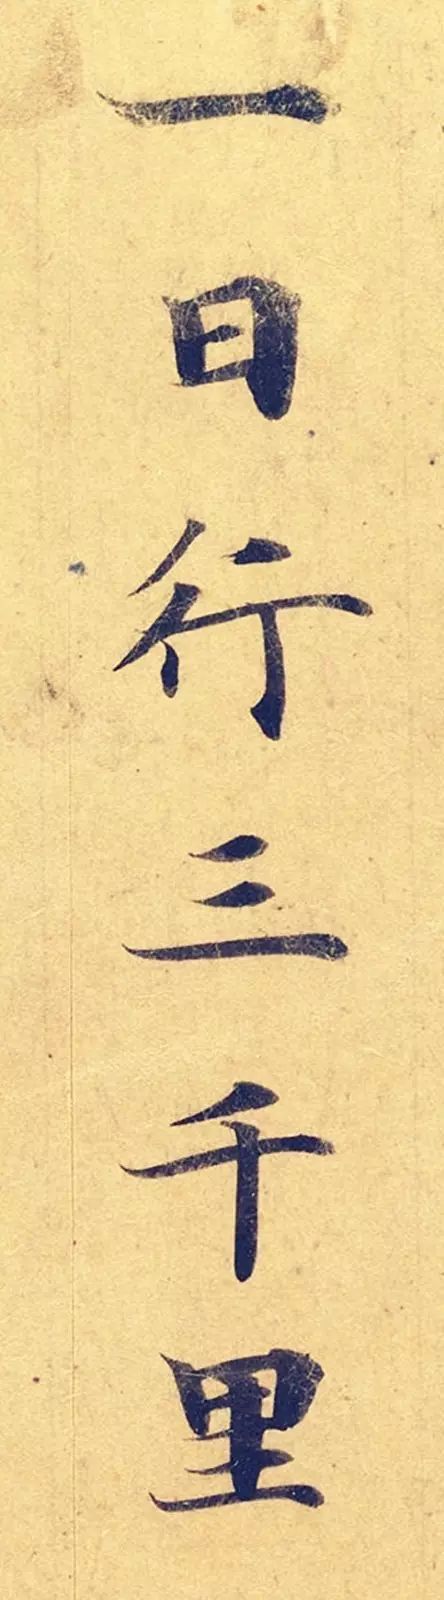 一日行三千里